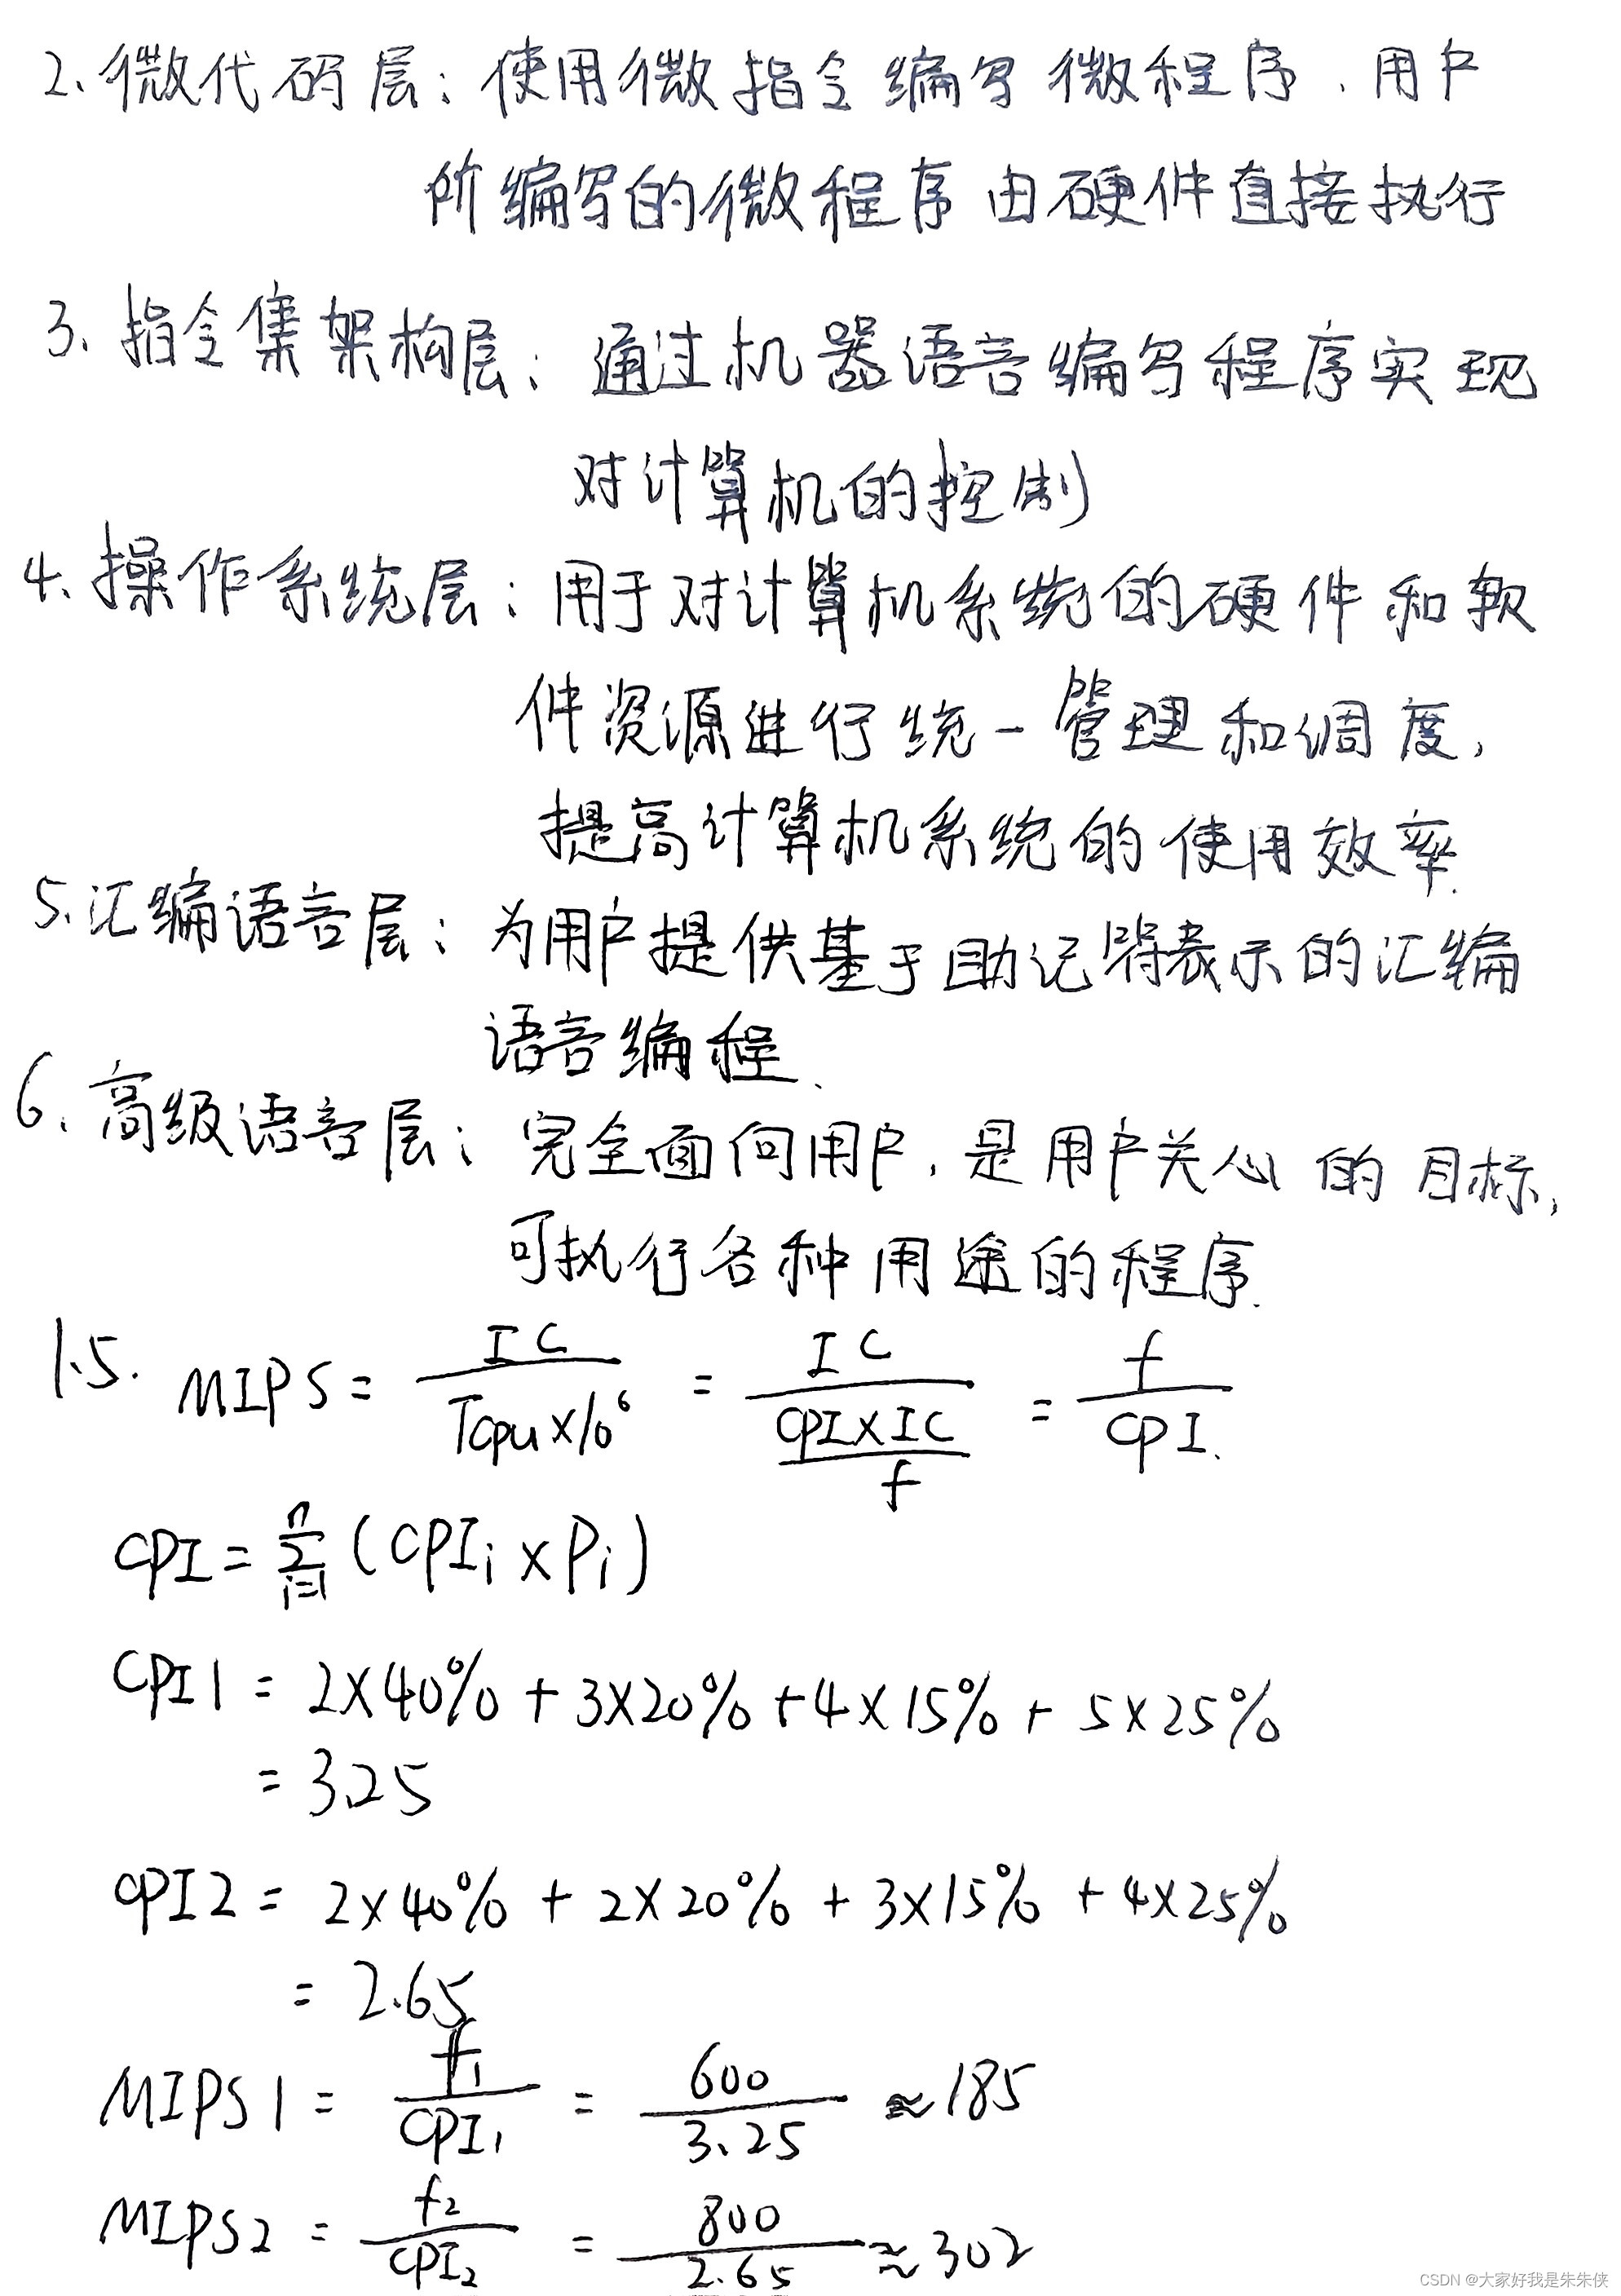 2、微代码层：使用微指令编写微程序、用户
所编写的微程序由硬件直接执行
3、指令集架构层：通过机器语言编写程序实现
对计算机的控制
4、操作系统层：用于对计算机系统的硬件和软
件资源进行统一管理和调度，
提高计算机系统的使用效率.
5、汇编语言层：为用户提供基于助记符表示的汇编
语言编程、
6、高级语言层：完全面向用户，是用户关心的目标，
可执行各种用途的程序.
1.5. MIPS = IC / (Tcpu × 10⁶) = IC / (CPI × IC / f) = f / CPI.
CPI = Σ(i=1..n) (CPIi × Pi)
CPI1 = 2×40% + 3×20% + 4×15% + 5×25%
= 3.25
CPI2 = 2×40% + 2×20% + 3×15% + 4×25%
= 2.65
MIPS1 = f₁ / CPI₁ = 600 / 3.25 ≈ 185
MIPS2 = f₂ / CPI₂ = 800 / 2.65 ≈ 302
CSDN @大家好我是朱朱侠